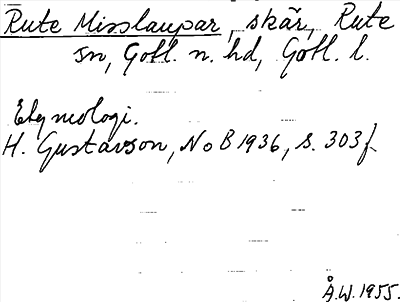 Rute Misslaupar, skär, Rute
sn, Gotl. n. hd, Gotl. l.
Etymologi.
H. Gustavson, NoB 1936, s. 303 f.
Å.W. 1955.